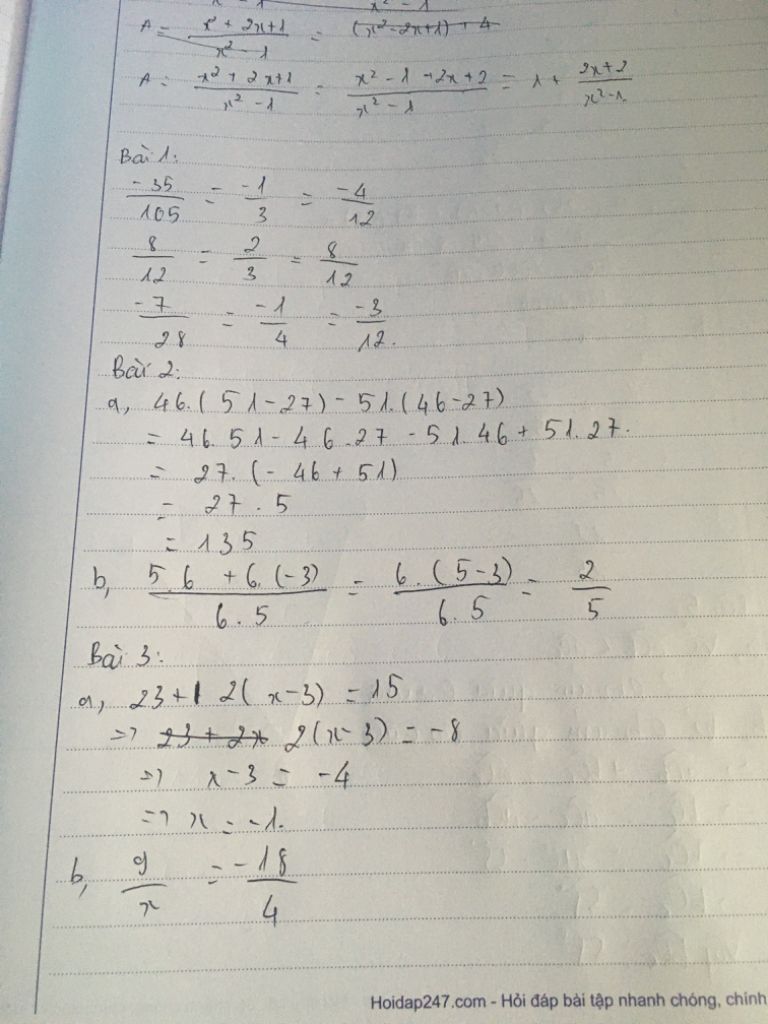 x² - 1
A = (x² + 2x+1)/(x² - 1) = (x² - 2x+1) + 4
A = (x² + 2x+1)/(x² - 1) = (x² - 1 + 2x + 2)/(x² - 1) = 1 + (2x+2)/(x² - 1)
Bài 1:
-35/105 = -1/3 = -4/12
8/12 = 2/3 = 8/12
-7/28 = -1/4 = -3/12.
Bài 2:
a, 46.(51-27) - 51.(46-27)
= 46.51 - 46.27 - 51.46 + 51.27.
= 27.(-46 + 51)
= 27.5
= 135
b, (5.6 + 6.(-3))/(6.5) = (6.(5-3))/(6.5) = 2/5
Bài 3:
a, 23 + 2(x-3) = 15
=> 23 + 2x 2(x-3) = -8
=> x-3 = -4
=> x = -1.
b, 9/x = -18/4
Hoidap247.com - Hỏi đáp bài tập nhanh chóng, chính